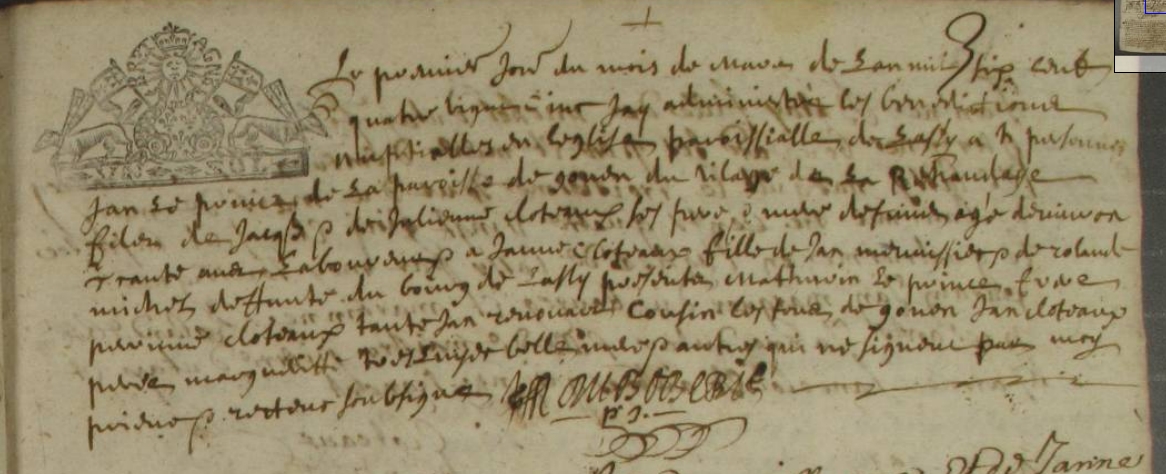 BRETAGNE
Le premier jour du mois de mars de Lan mil six cent
quatre vignt cinc Jay administré les benedictions
nuptialles en leglise paroissialle de Lassy a
Jan Le prince de La paroisse de gouen du vilage de La
filz de Jacq et de Julienne cloteaux ses pere et mere defunct agé denviron
trante ans Laboureux a Janne cloteaux fille de Jan menuissier et de rolande
michel deffunte du bourg de Lassy presents Mathurin Le prince frere
perinne cloteaux tante Jan Cousin les tous de gouen Jan cloteaux
pere margueritte belle mere et autres qui ne signent par moy
prieur et recteur soubsigné